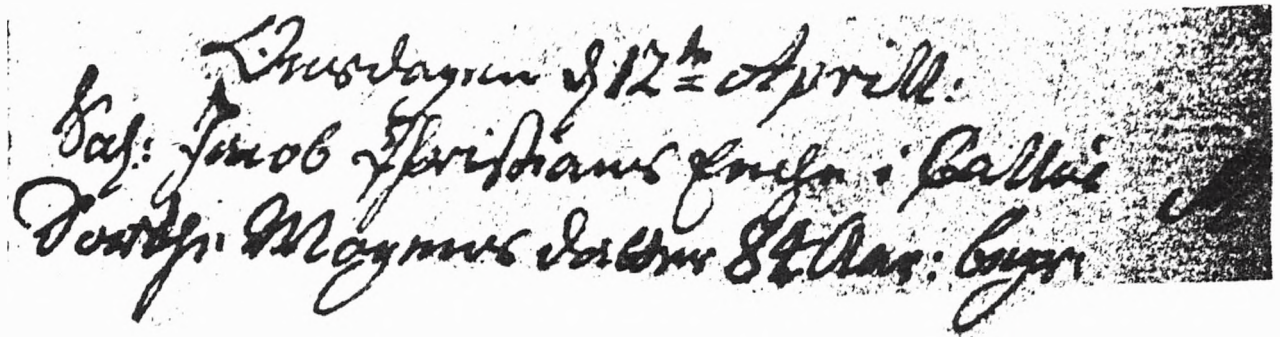 Onsdagen d 12te Aprill:
Sal: Jacob Christians Enche i Ballùe
Dorthe Mogens datter 84 Aar: begr: